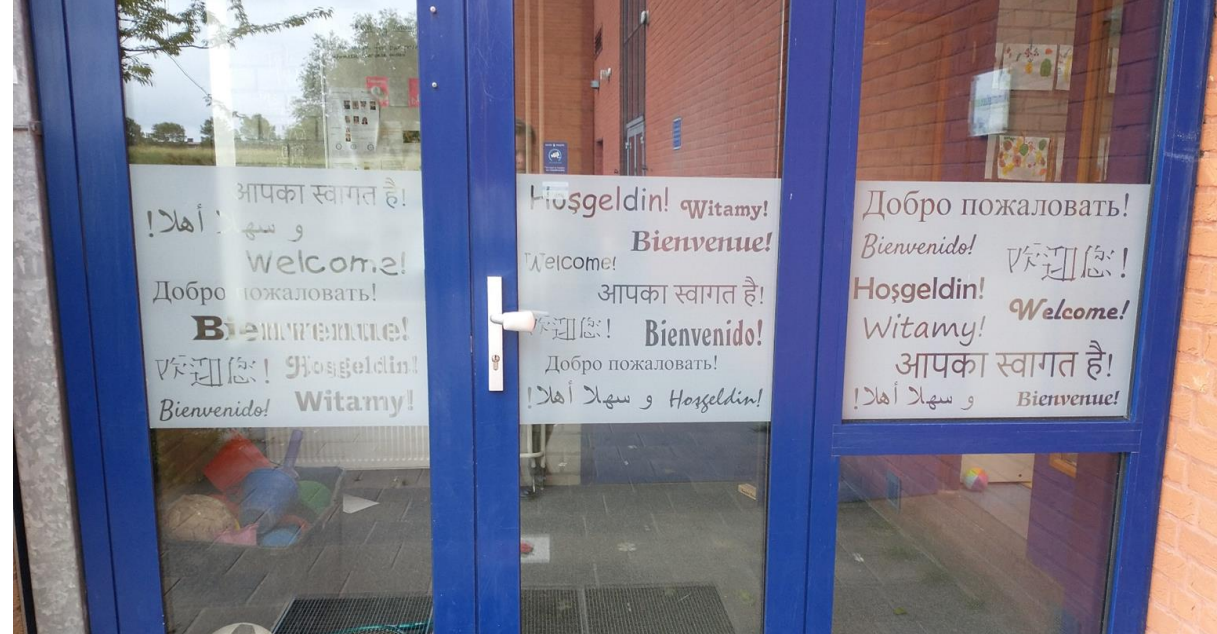 आपका स्वागत है!
و سهلا أهلا!
Welcome!
Добро пожаловать!
Bienvenue!
欢迎您! Hoşgeldin!
Bienvenido! Witamy!
Hoşgeldin! Witamy!
Bienvenue!
Welcome!
आपका स्वागत है!
欢迎您! Bienvenido!
Добро пожаловать!
و سهلا أهلا! Hoşgeldin!
Добро пожаловать!
Bienvenido! 欢迎您!
Hoşgeldin! Welcome!
Witamy!
आपका स्वागत है!
و سهلا أهلا! Bienvenue!